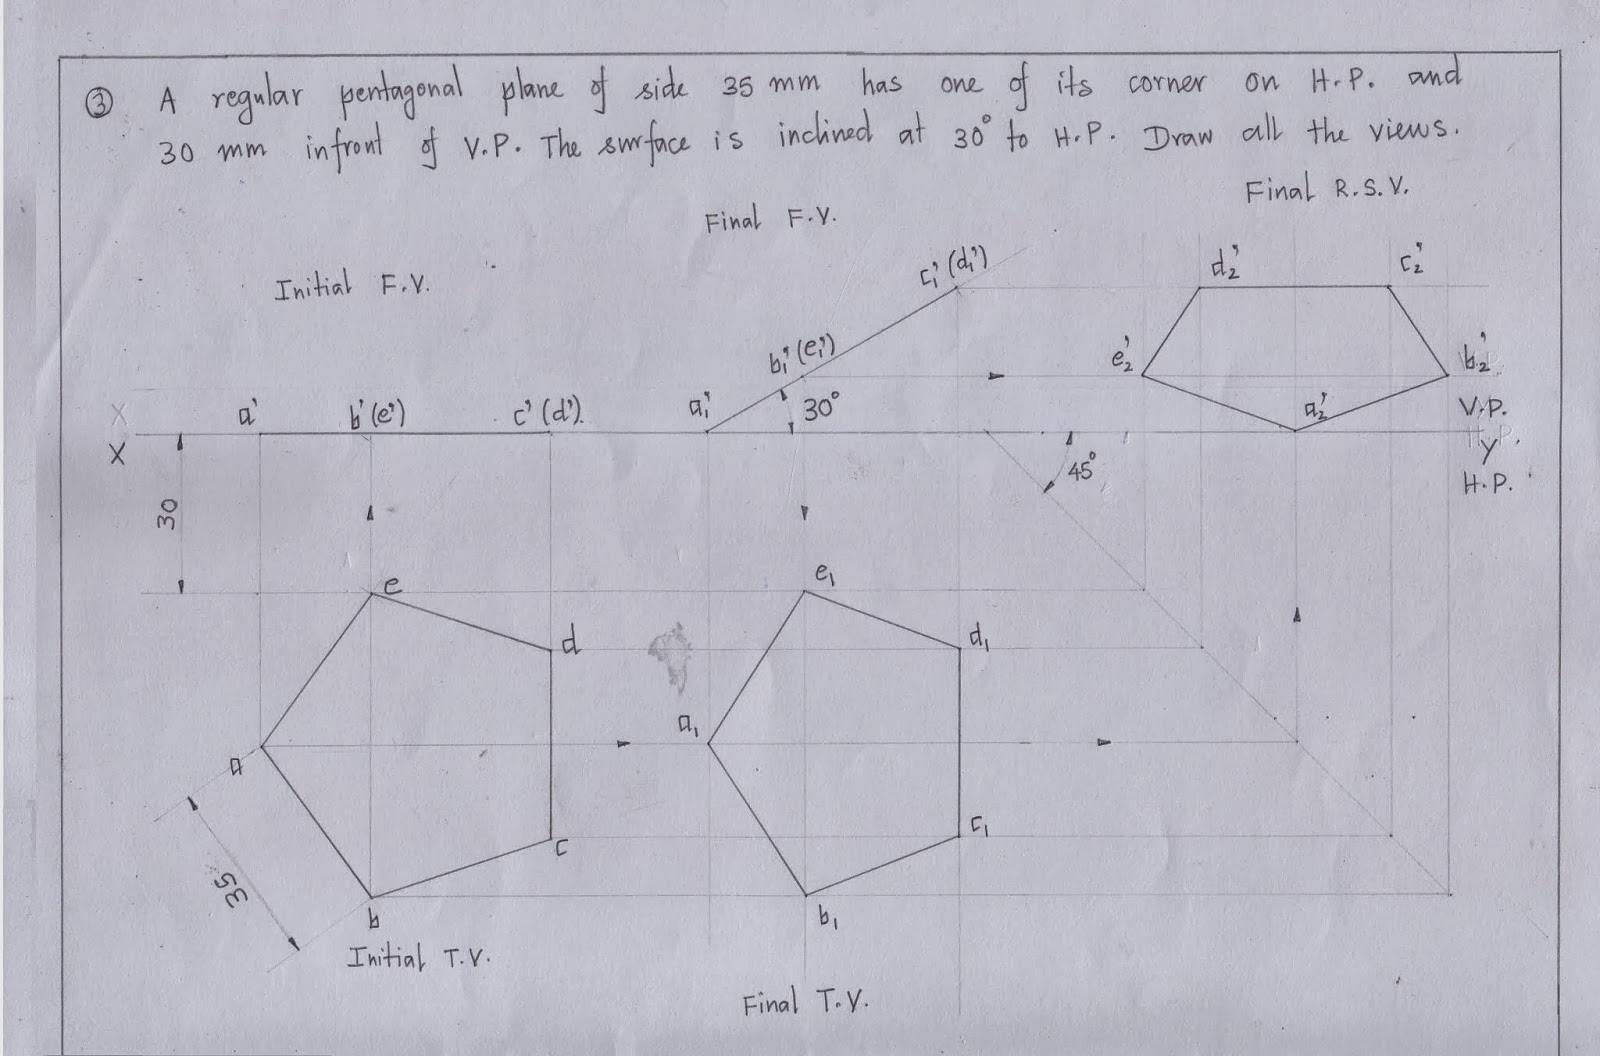 ③ A regular pentagonal plane of side 35 mm has one of its corner on H.P. and
30 mm infront of V.P. The surface is inclined at 30° to H.P. Draw all the views.
Final R.S.V.
Final F.V.
Initial F.V.
c₁' (d₁')
d₂'
c₂'
b₁' (e₁')
e₂'
b₂'
a'
b' (e')
c' (d')
a₁'
30°
a₂'
V.P.
X
X
H.P.
y
H.P.
45°
30
e
e₁
d
d₁
a
a₁
c
c₁
35
b
b₁
Initial T.V.
Final T.V.